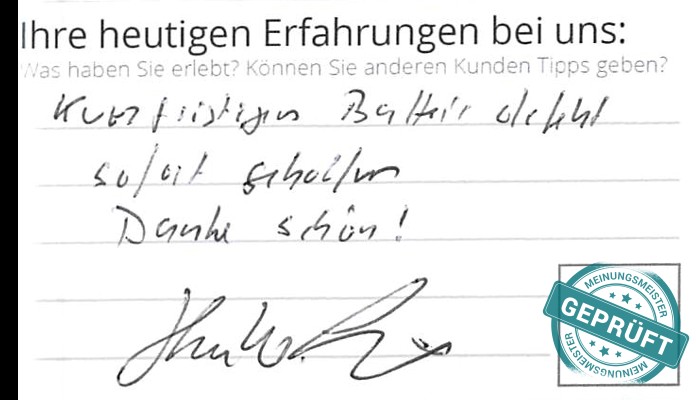 Ihre heutigen Erfahrungen bei uns:
Was haben Sie erlebt? Können Sie anderen Kunden Tipps geben?
Kurzfristigen Batterie defekt
sofort geholfen
Danke schön!
MEINUNGSMEISTER
GEPRÜFT
MEINUNGSMEISTER